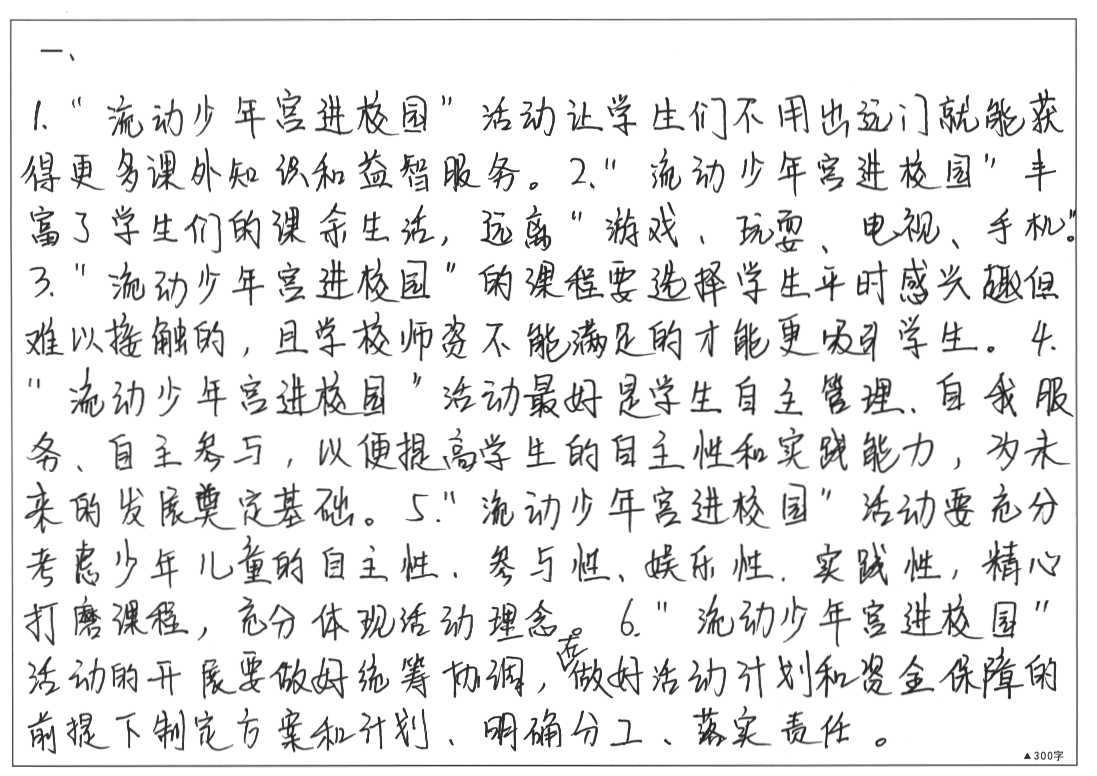 一、
1.“流动少年宫进校园”活动让学生们不用出远门就能获
得更多课外知识和益智服务。2.“流动少年宫进校园”丰
富了学生们的课余生活，远离“游戏、玩耍、电视、手机”。
3.“流动少年宫进校园”的课程要选择学生平时感兴趣但
难以接触的，且学校师资不能满足的才能更吸引学生。4.
“流动少年宫进校园”活动最好是学生自主管理、自我服
务、自主参与，以便提高学生的自主性和实践能力，为未
来的发展奠定基础。5.“流动少年宫进校园”活动要充分
考虑少年儿童的自主性、参与性、娱乐性、实践性，精心
打磨课程，充分体现活动理念。6.“流动少年宫进校园”
活动的开展要做好统筹协调，在做好活动计划和资金保障的
前提下制定方案和计划、明确分工、落实责任。
▲300字